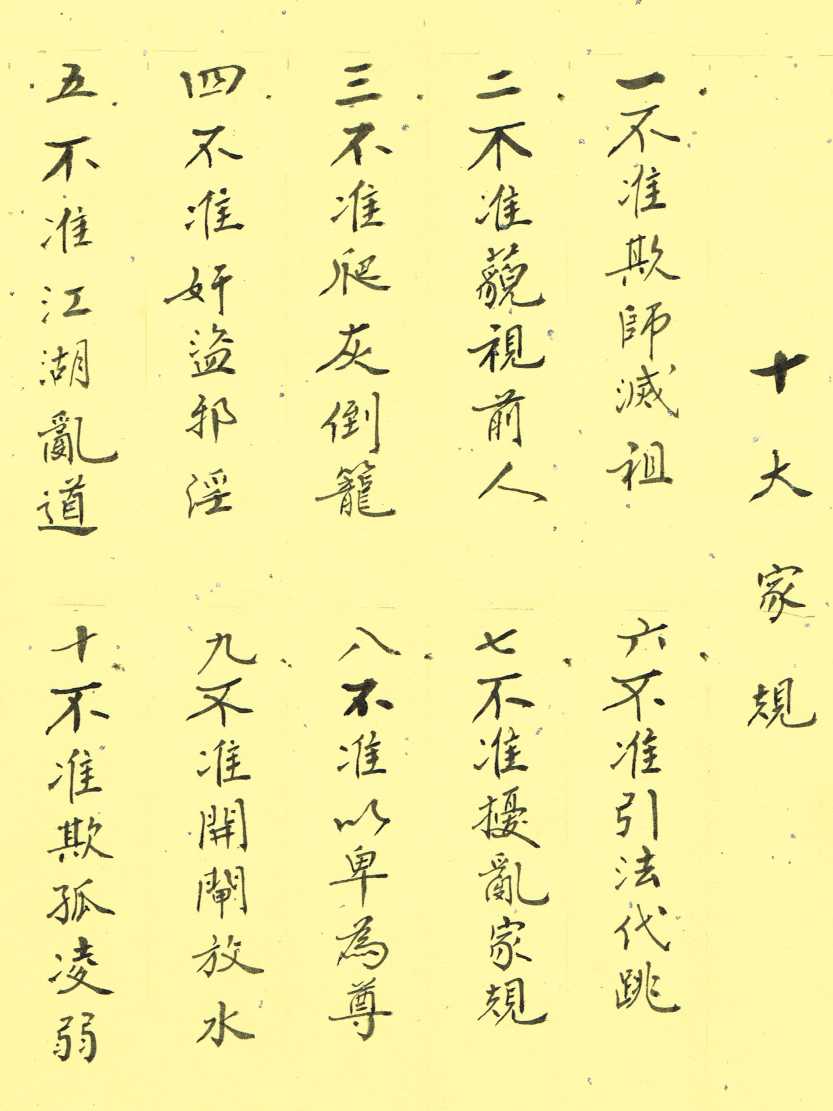 十大家規
一不准欺師滅祖
二不准藐視前人
三不准爬灰倒籠
四不准奸盜邪淫
五不准江湖亂道
六不准引法代跳
七不准擾亂家規
八不准以卑為尊
九不准開閘放水
十不准欺孤凌弱